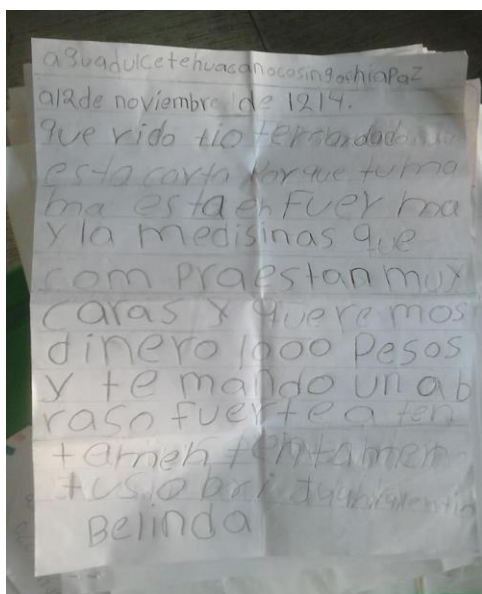 aguadulcetehuacanocosingochiapaz
a12de noviembre de 1214.
que rido tio fernandado
esta carta porque tu ma
ma esta en Fuer ma
y la medisinas que
com praestan muy
caras y queremos
dinero 1000 Pesos
y te mando un ab
raso fuerte a ten
tameh tentamen
tu sobri
Belinda